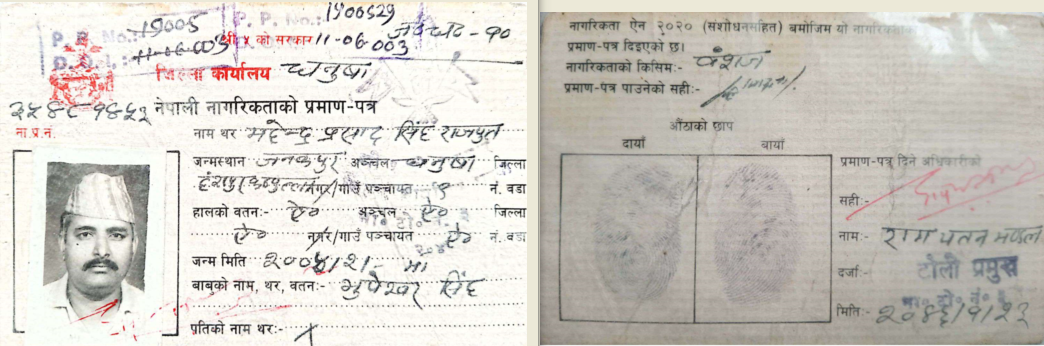 P. P. No.: 19005 P. P. No.: 1900529
11-06-003 श्री ५ को सरकार 11-06-003
जिल्ला कार्यालय धनुषा
नेपाली नागरिकताको प्रमाण-पत्र
ना.प्र.नं.
नाम थर महेन्द्र प्रसाद सिंह राजपुत
जन्मस्थान जनकपुर अञ्चल धनुषा जिल्ला
नगर/गाउँ पञ्चायत ९ नं. वडा
हालको वतन:- ऐ० अञ्चल ऐ० जिल्ला
ऐ० नगर/गाउँ पञ्चायत ऐ० नं. वडा
जन्म मिति
बाबुको नाम, थर, वतन:- भुपेश्वर सिंह
पतिको नाम थर:- X
नागरिकता ऐन २०२० (संशोधनसहित) बमोजिम यो नागरिकताको
प्रमाण-पत्र दिइएको छ।
नागरिकताको किसिम:- वंशज
प्रमाण-पत्र पाउनेको सही:-
औंठाको छाप
दायाँ बायाँ
प्रमाण-पत्र दिने अधिकारीको
सही:-
नाम:- राम मण्डल
दर्जा:- टोली प्रमुख
मिति:- २०४६/१/२३